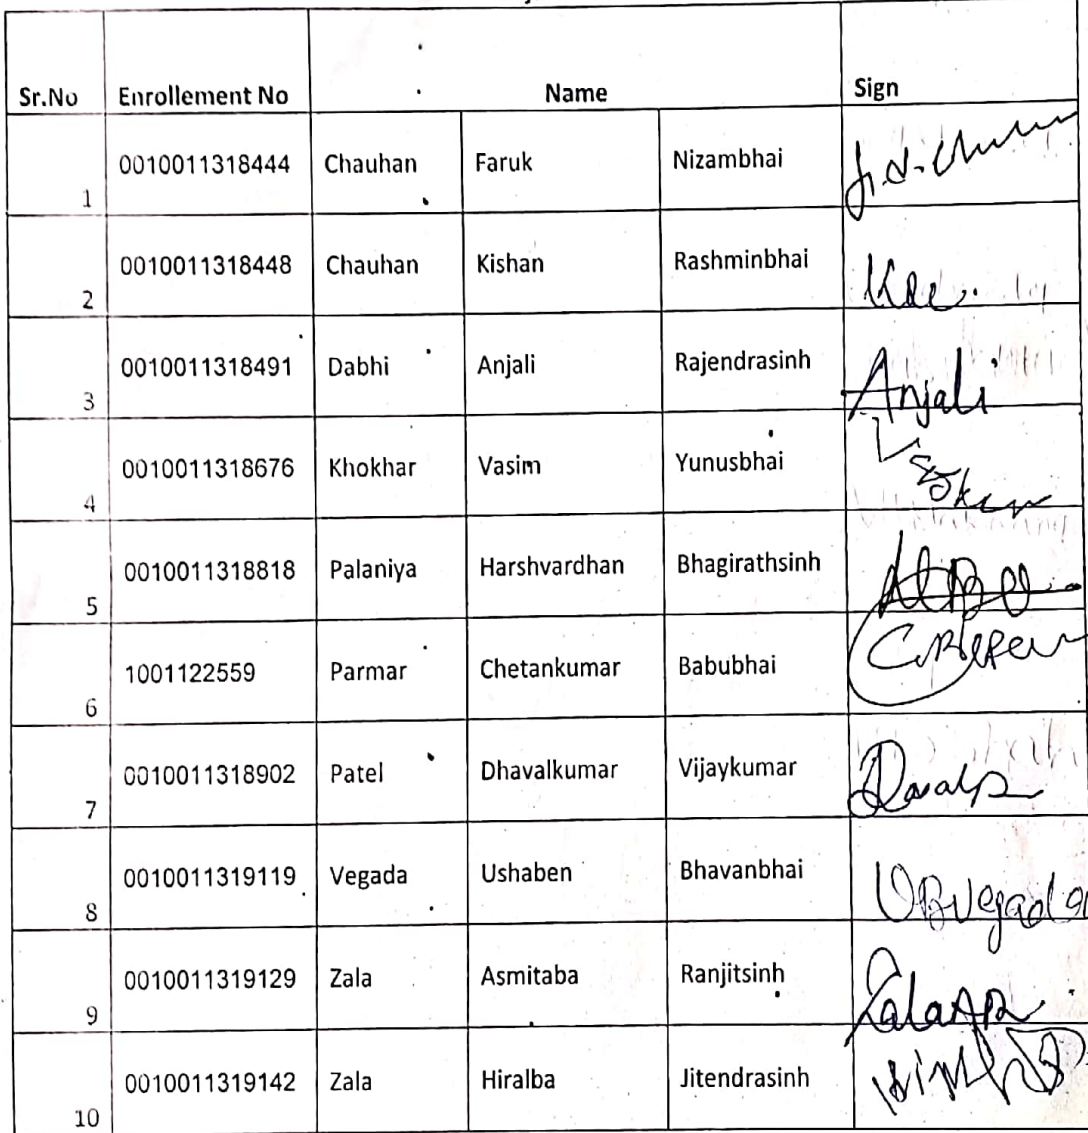 Sr.No Enrollement No Name Sign
1 0010011318444 Chauhan Faruk Nizambhai
2 0010011318448 Chauhan Kishan Rashminbhai
3 0010011318491 Dabhi Anjali Rajendrasinh Anjali
4 0010011318676 Khokhar Vasim Yunusbhai
5 0010011318818 Palaniya Harshvardhan Bhagirathsinh
6 1001122559 Parmar Chetankumar Babubhai
7 0010011318902 Patel Dhavalkumar Vijaykumar
8 0010011319119 Vegada Ushaben Bhavanbhai UBVegada
9 0010011319129 Zala Asmitaba Ranjitsinh ZalaAR
10 0010011319142 Zala Hiralba Jitendrasinh